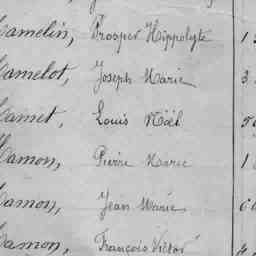 Hamelin, Prosper Hippolyte 1
Hamelot, Joseph Marie 3
Hamet, Louis Noël
Hamon, Pierre Marie 1
Hamon, Jean Marie
Hamon, François Victor